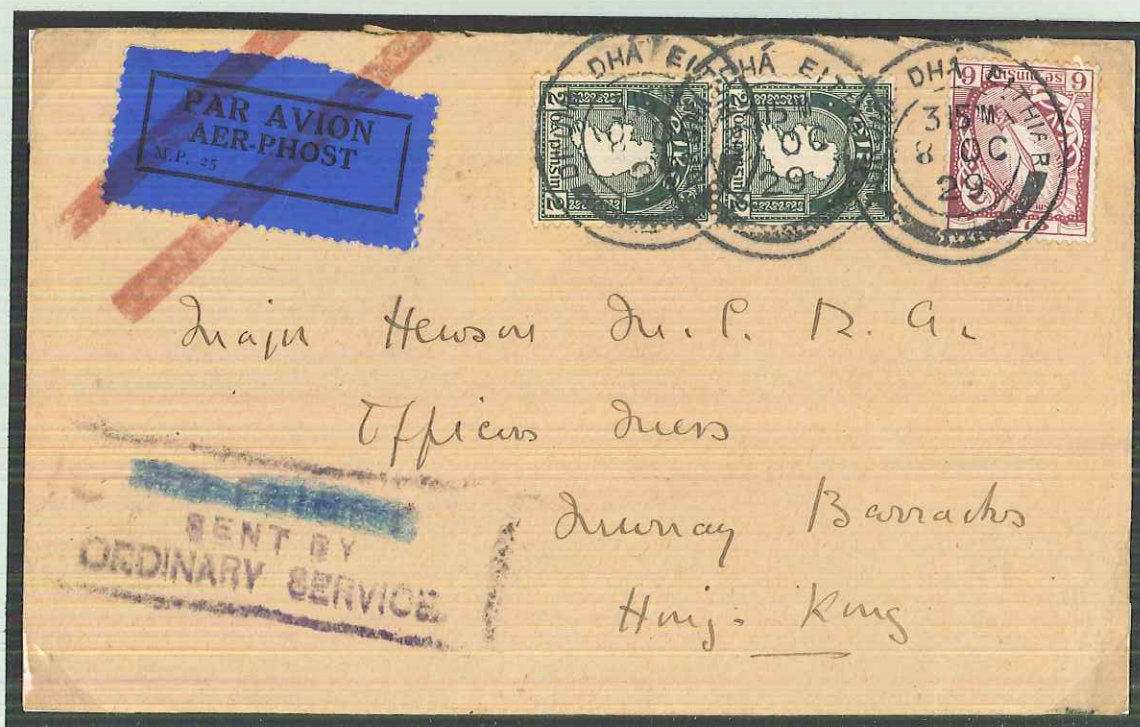 PAR AVION
AER-PHOST
M.P. 25
DHÁ EITHIR
315 PM
8 OC
29
2 2
2 2
6 6
Major Hewson M.C. R.A.
Officers Mess
Murray Barracks
Hong-Kong
SENT BY
ORDINARY SERVICE